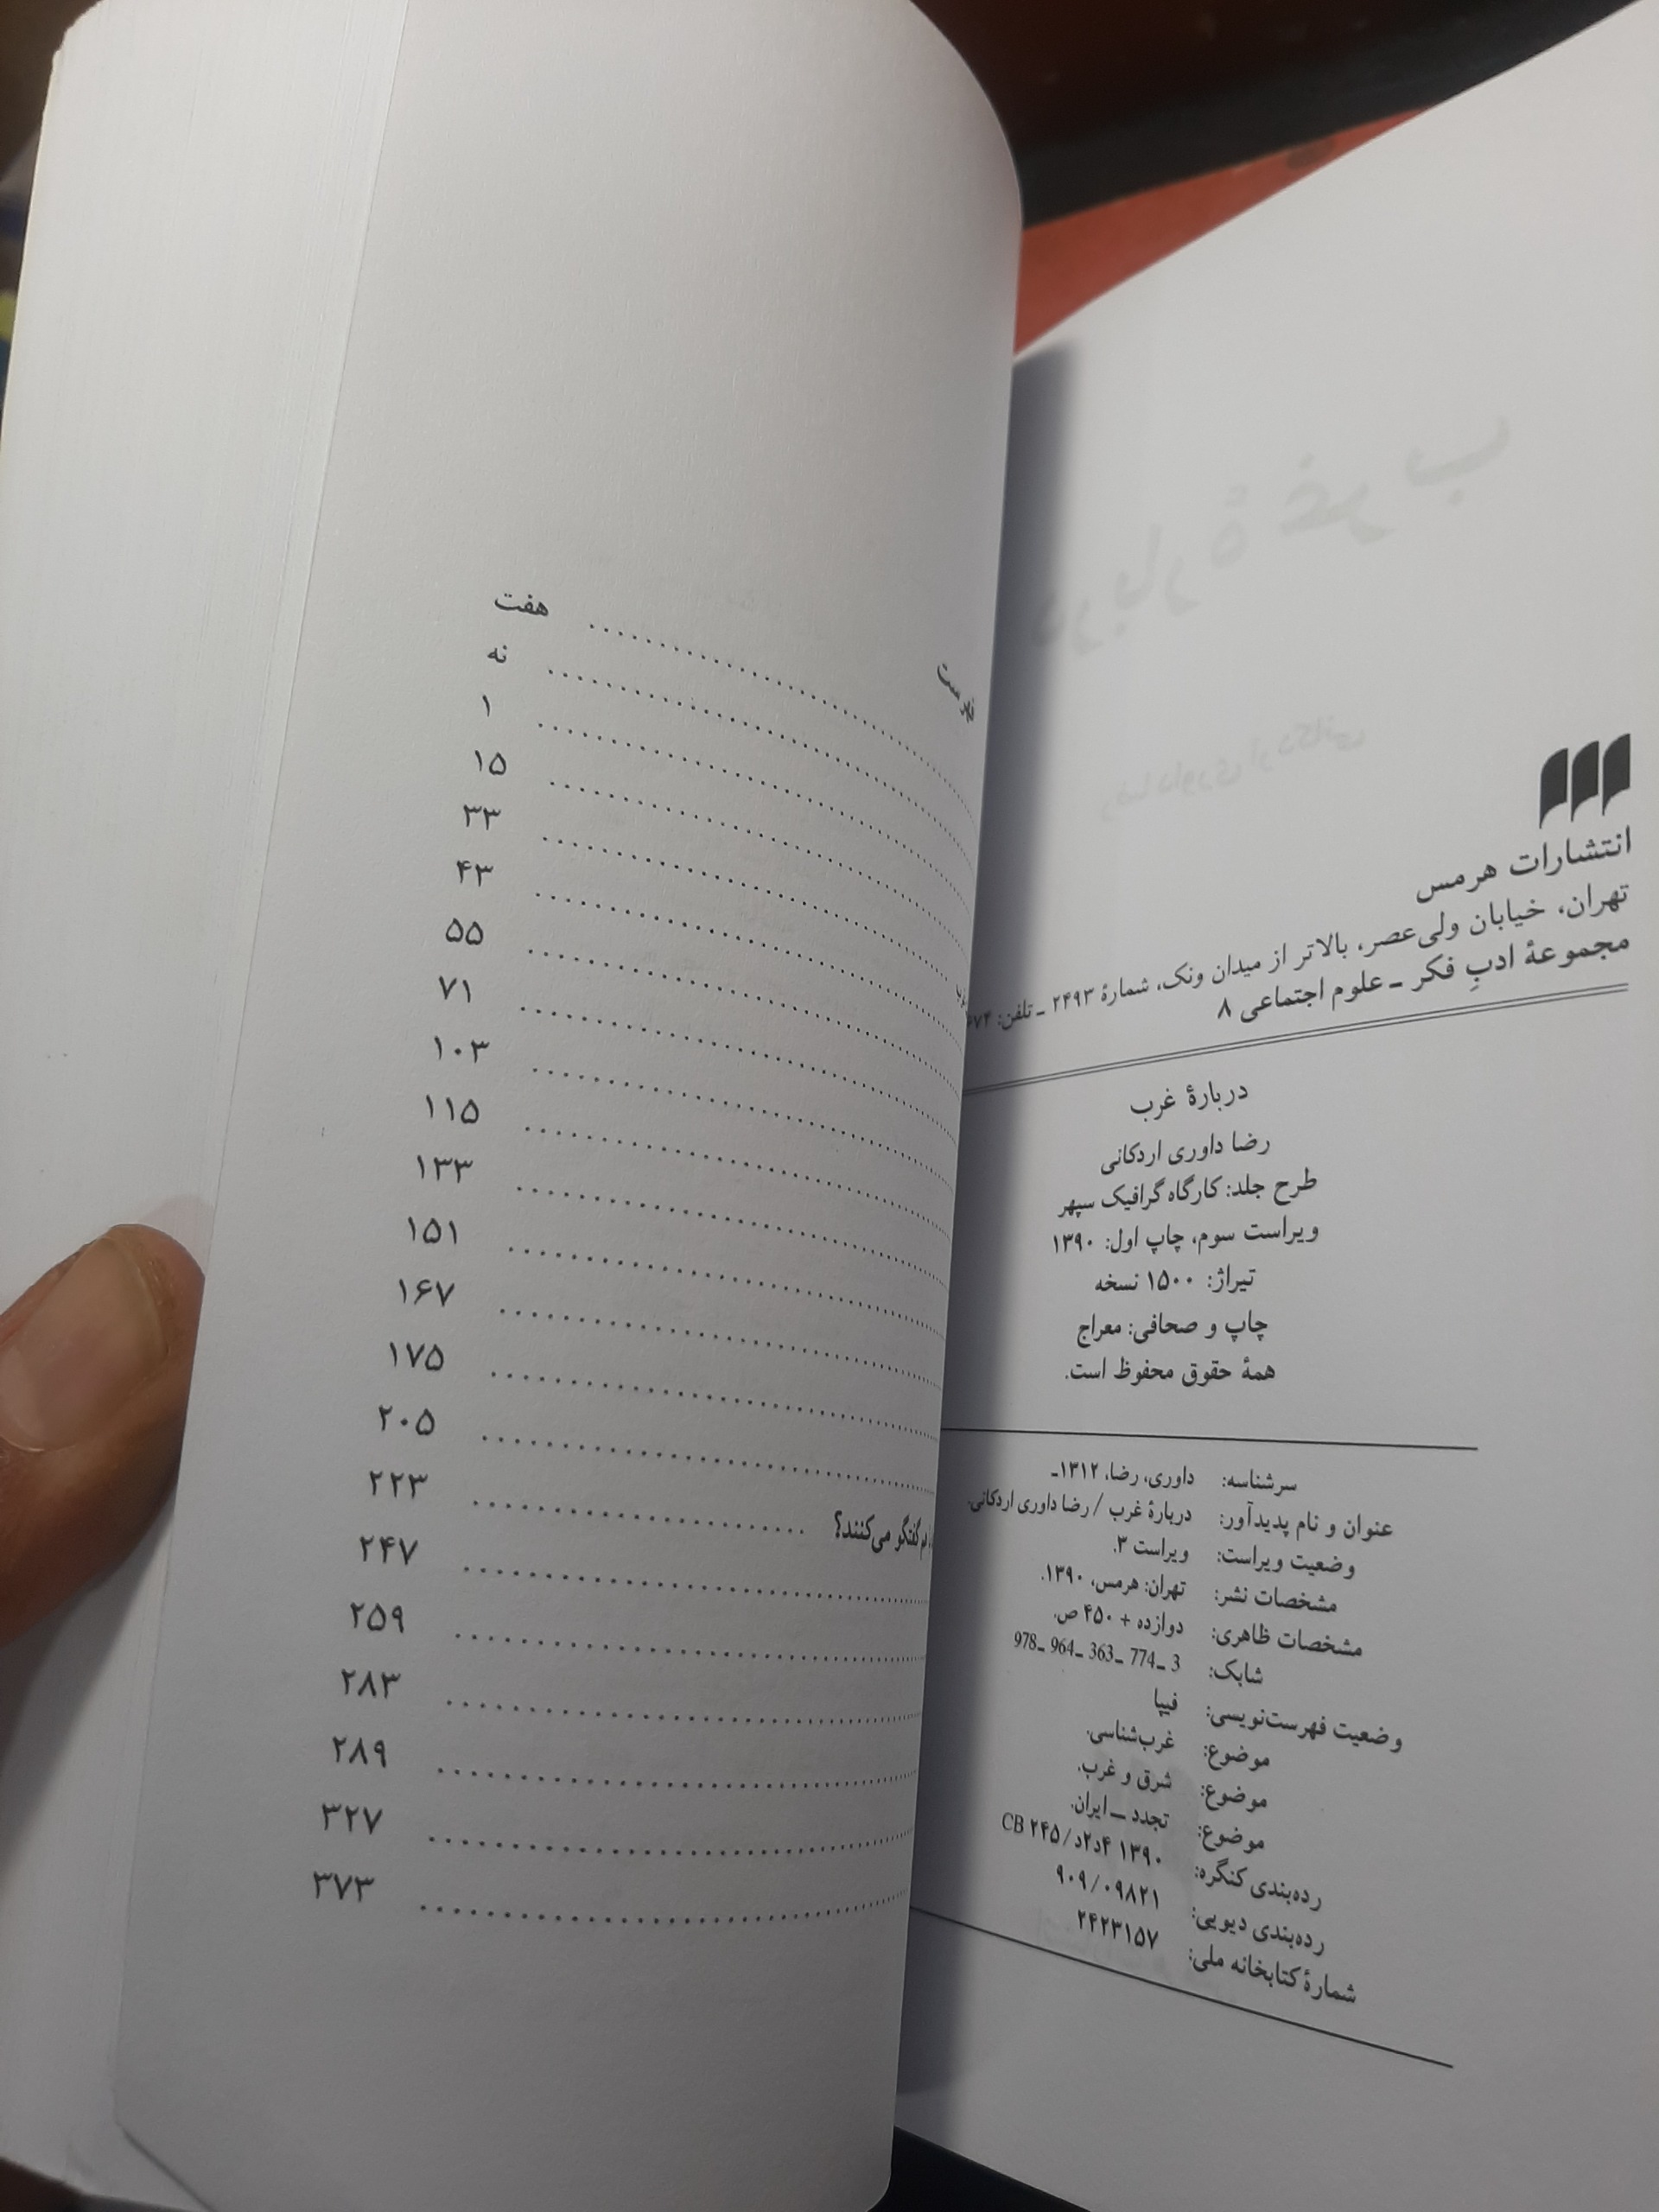 انتشارات هرمس
تهران، خیابان ولی‌عصر، بالاتر از میدان ونک، شمارهٔ ۲۴۹۳ ـ تلفن:
مجموعهٔ ادبِ فکر ـ علوم اجتماعی ۸
دربارهٔ غرب
رضا داوری اردکانی
طرح جلد: کارگاه گرافیک سپهر
ویراست سوم، چاپ اول: ۱۳۹۰
تیراژ: ۱۵۰۰ نسخه
چاپ و صحافی: معراج
همهٔ حقوق محفوظ است.
سرشناسه: داوری، رضا، ۱۳۱۲ـ
عنوان و نام پدیدآور: دربارهٔ غرب / رضا داوری اردکانی.
وضعیت ویراست: ویراست ۳.
مشخصات نشر: تهران: هرمس، ۱۳۹۰.
مشخصات ظاهری: دوازده + ۴۵۰ ص.
شابک: 978ـ 964ـ 363ـ 774ـ 3
وضعیت فهرست‌نویسی: فیپا
موضوع: غرب‌شناسی.
موضوع: شرق و غرب.
موضوع: تجدد ــ ایران.
رده‌بندی کنگره: ۱۳۹۰ ۴د۲د/ CB ۲۴۵
رده‌بندی دیویی: ۹۰۹/۰۹۸۲۱
شمارهٔ کتابخانه ملی: ۲۴۲۳۱۵۷
فهرست
هفت
نه
۱
۱۵
۳۳
۴۳
۵۵
۷۱
۱۰۳
۱۱۵
۱۳۳
۱۵۱
۱۶۷
۱۷۵
۲۰۵
گفتگو می‌کنند؟ ۲۲۳
۲۴۷
۲۵۹
۲۸۳
۲۸۹
۳۲۷
۳۷۳